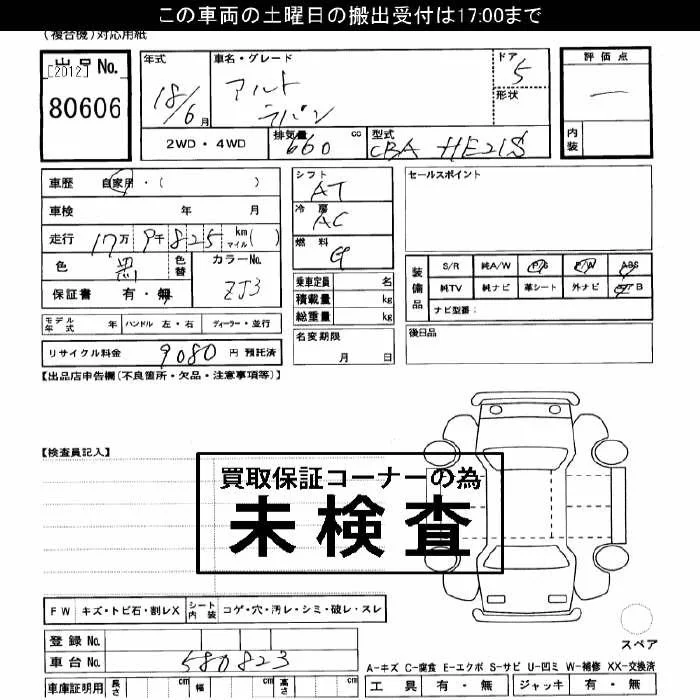 この車両の土曜日の搬出受付は17:00まで
(複合機)対応用紙
出品 No.
[2012]
80606
年式
18/6月
車名・グレード
アルト
ラパン
ドア
5
形状
評価点
—
内装
2WD・4WD
排気量 660 cc
型式 CBA HE21S
車歴 自家用・( )
車検 年 月
走行 17万 9千 825 km マイル( )
色 黒 色替
カラーNo.
ZJ3
保証書 有・無
シフト
AT
冷房
AC
燃料
G
乗車定員 名
積載量 kg
総重量 kg
セールスポイント
装備品
S/R 純A/W P/S P/W ABS
純TV 純ナビ 革シート 外ナビ B
ナビ型番:
モデル年式 年 ハンドル 左・右 ディーラー・並行
リサイクル料金 9080 円 預託済
名変期限
月 日
後日品
【出品店申告欄(不良箇所・欠品・注意事項等)】
【検査員記入】
買取保証コーナーの為
未検査
FW キズ・トビ石・割レX シート内装 コゲ・穴・汚レ・シミ・破レ・スレ
登録 No.
車台 No. 580823
車庫証明用 長さ cm 幅 cm 高さ cm
スペア
A-キズ C-腐食 E-エクボ S-サビ U-凹ミ W-補修 XX-交換済
工具 有・無 ジャッキ 有・無